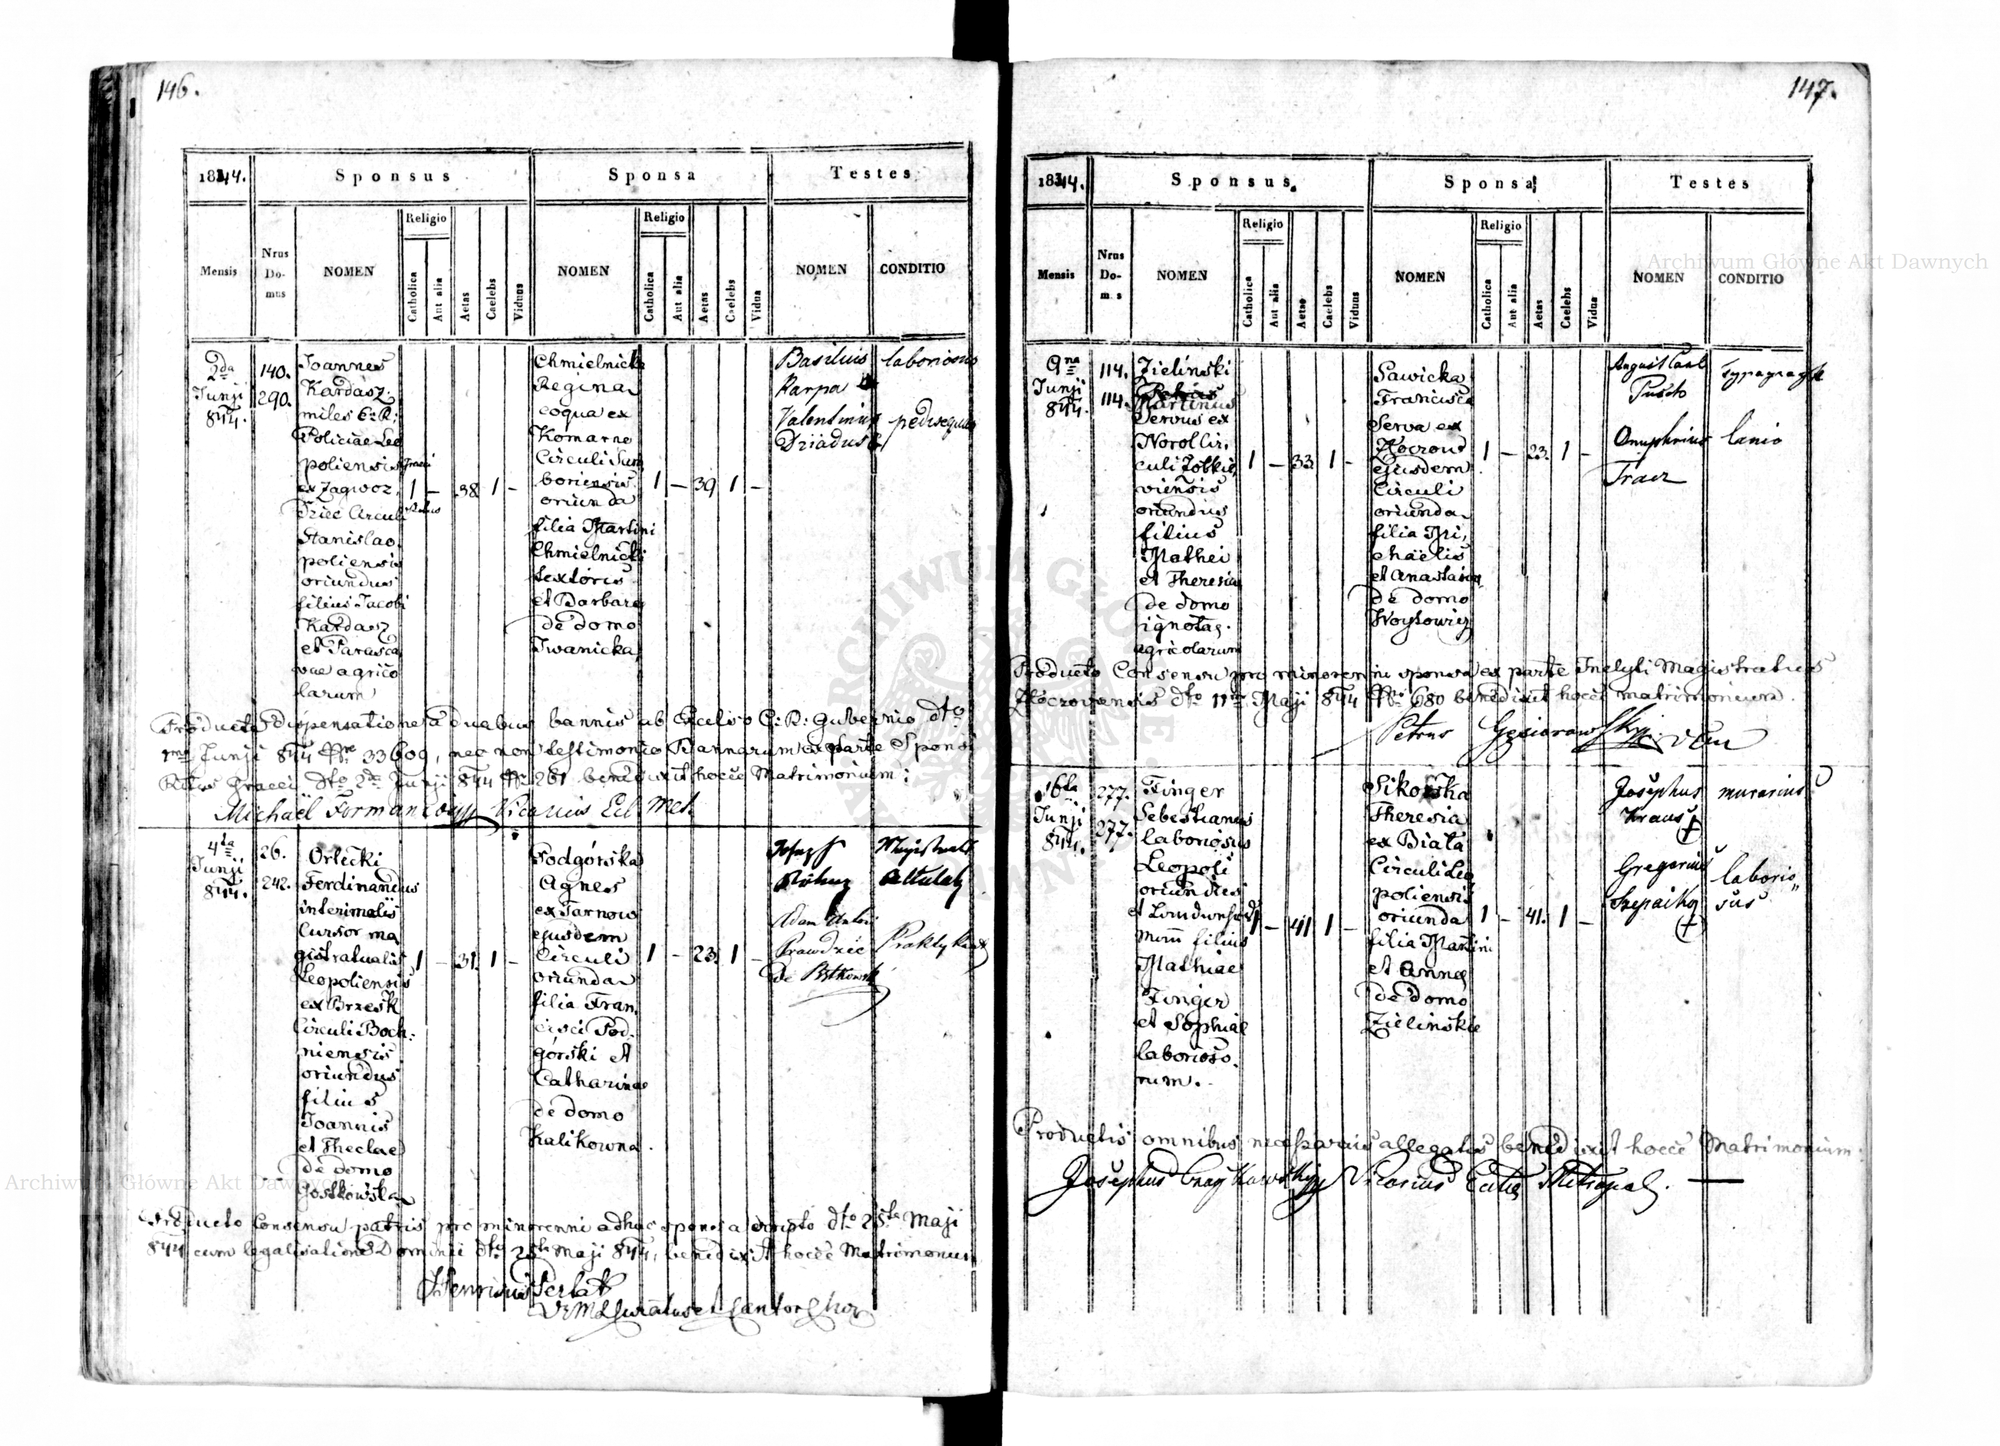 146.
1844.
Sponsus
Sponsa
Testes
Mensis
Nrus Do- mus
NOMEN
Religio
Catholica
Aut alia
Aetas
Caelebs
Viduus
NOMEN
Religio
Catholica
Aut alia
Aetas
Caelebs
Vidua
NOMEN
CONDITIO
2da
Junji
844.
140.
290.
Joannes
Kardasz
miles C: R:
Policiae Leo
poliensis
ex Zagwoz,
dziec Circuli
Stanislao
poliensis
oriundus
filius Jacobi
Kardasz
et Parasce
vae agrico
larum
1 – 38 1 –
Chmielnicka
Regina
coqua ex
Komarno
Circuli Sam
boriensis
oriunda
filia Martini
Chmielnicki
textoris
et Barbara
de domo
Iwanicka
1 – 39 1 –
Basilius
Karpa
Valentinus
Dziadus
laboriosus
pedisequus
Producta dispensatione a duabus bannis ab Excelso C: R: Gubernio dto
1ma Junji 844 Nr. 33609, nec non testimonio Bannorum ex parte Sponsi
Ritus Graeci dto 2da Junji 844 Nr. 261 benedixit hocce Matrimonium:
Michaël Formaniosz Vicarius Ecl. Met.
4ta
Junji
844.
26.
242.
Orlecki
Ferdinandus
interimalis
Cursor ma
gistratualis
Leopoliensis
ex Brzesk
Circuli Boch:
niensis
oriundus
filius
Joannis
et Theclae
de domo
Gostkowska
1 – 31. 1 –
Podgórska
Agnes
ex Tarnow
ejusdem
Circuli
oriunda
filia Fran,
cisci Pod-
górski et
Catharinae
de domo
Kalikowna.
1 – 23 1 –
Josef
Magistrats
Adam
Prawdzic
de
Praktykant
Producto Consensu patris pro minorenni adhuc sponsa scripto dto 25ta Maji
844 cum legalisatione Dominii dto 25ta Maji 844, benedixit hocce Matrimonium
Henricus
147.
1844.
Sponsus
Sponsa
Testes
Mensis
Nrus Do- mus
NOMEN
Religio
Catholica
Aut alia
Aetas
Caelebs
Viduus
NOMEN
Religio
Catholica
Aut alia
Aetas
Caelebs
Vidua
NOMEN
CONDITIO
9na
Junji
844.
114.
114.
Zielinski
Martinus
Servus ex
Circuli Zolkie
viensis
oriundus
filius
Mathei
et Theresia
de domo
ignota
agricolarum
1 – 33 1 –
Sawicka
Francisca
Serva ex
ejusdem
Circuli
oriunda
filia Mi,
chaëlis
et Anastasia
de domo
Woytowicz
1 – 23. 1 –
August Carl
Onuphrius
Tracz
lanio
Producto Consensu pro minorenni sponsa ex parte Inclyti Magistratus
Zloczoviensis dto 11ma Maji 844 Nr. 680 benedixit hocce matrimonium.
Petrus
16ta
Junji
844.
277.
277.
Finger
Sebestianus
laboriosus
Leopoli
oriundus
filius
Mathiae
Finger
et Sophiae
laborioso,
rum.
1 – 41 1 –
Sikorska
Theresia
ex Biała
Circuli Leo
poliensis
oriunda
filia Martini
et Anna
de domo
Zielinskie
1 – 41. 1 –
Josephus
Kraus
+
Gregorius
+
murarius
laborio,,
sus
Productis omnibus necessariis allegatis benedixit hocce Matrimonium:
Josephus Vicarius Metropol.
Archiwum Główne Akt Dawnych
Archiwum Główne Akt Dawnych